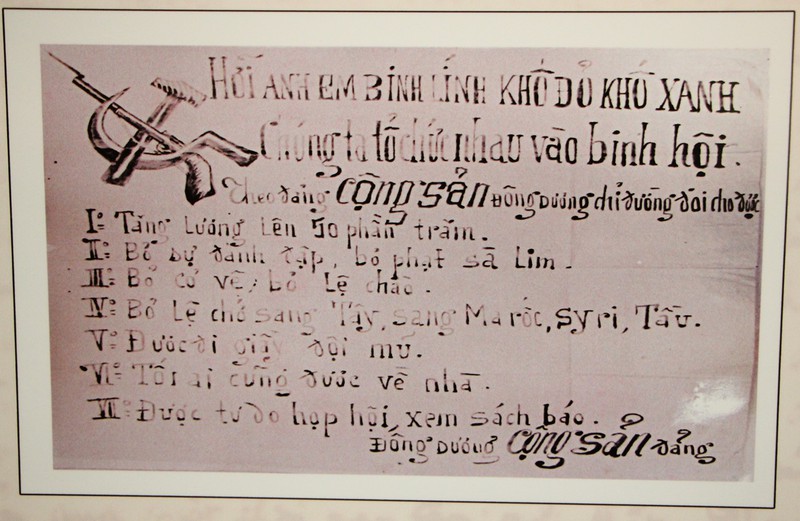 HỠI ANH EM BINH LÍNH KHỐ ĐỎ KHỐ XANH
Chúng ta tổ chức nhau vào binh hội.
Theo đảng CỘNG SẢN ĐÔNG DƯƠNG chỉ đường đòi cho được
I: Tăng lương lên 50 phần trăm.
II: Bỏ sự đánh đập, bỏ phạt sà lim.
III: Bỏ cỏ vê, bỏ lệ chào.
IV: Bỏ lệ chở sang Tây, sang Ma rốc, Syri, Tầu.
V: Được đi giầy đội mũ.
VI: Tối ai cũng được về nhà.
VII: Được tự do họp hội, xem sách báo.
ĐÔNG DƯƠNG CỘNG SẢN đảng